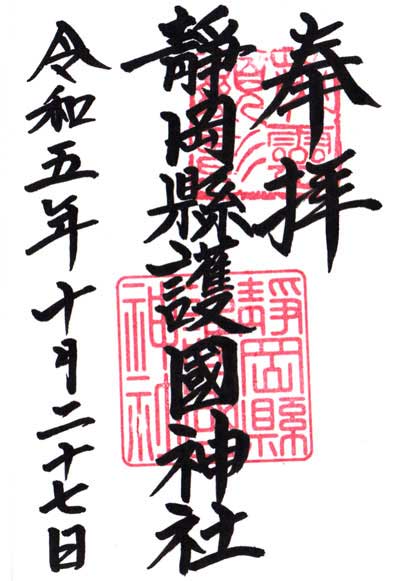 奉拝
靜岡縣護國神社
令和五年十月二十七日
靜岡縣
神社